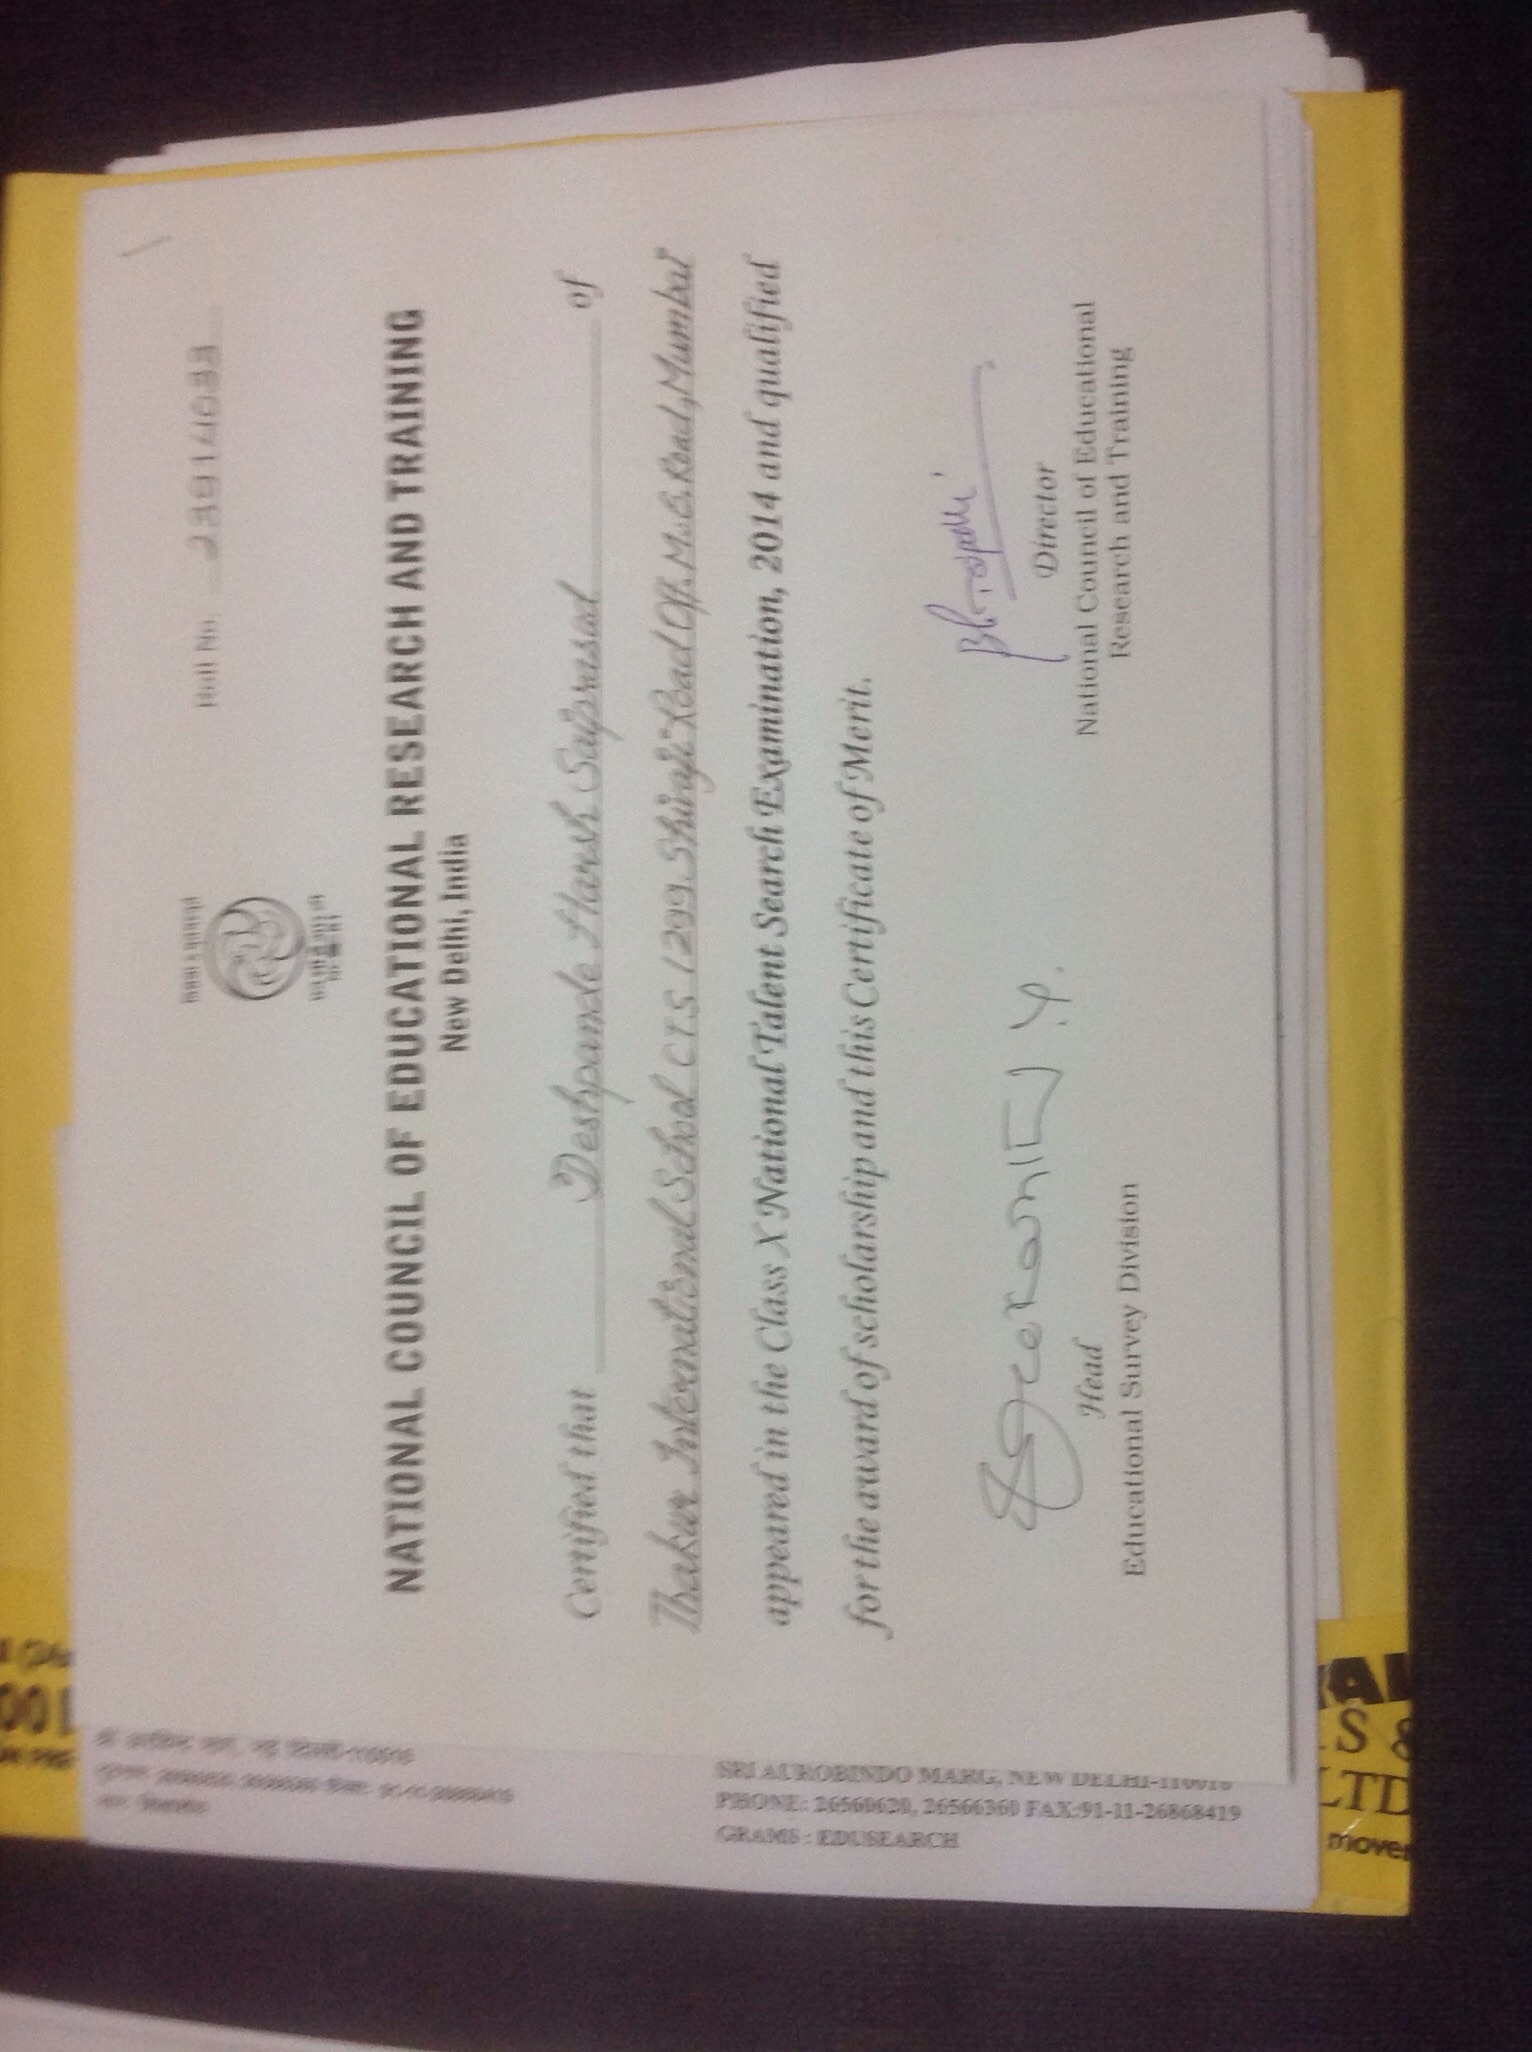 Roll No. 23914033
NATIONAL COUNCIL OF EDUCATIONAL RESEARCH AND TRAINING
New Delhi, India
Certified that Deshpande Harsh Saiprasad of
Thakur International School CTS 1299 Shivaji Road Off. M.G. Road, Mumbai
appeared in the Class X National Talent Search Examination, 2014 and qualified
for the award of scholarship and this Certificate of Merit.
Head
Educational Survey Division
Director
National Council of Educational
Research and Training
SRI AUROBINDO MARG, NEW DELHI-110016
PHONE: 26560620, 26566360 FAX:91-11-26868419
GRAMS : EDUSEARCH
LTD